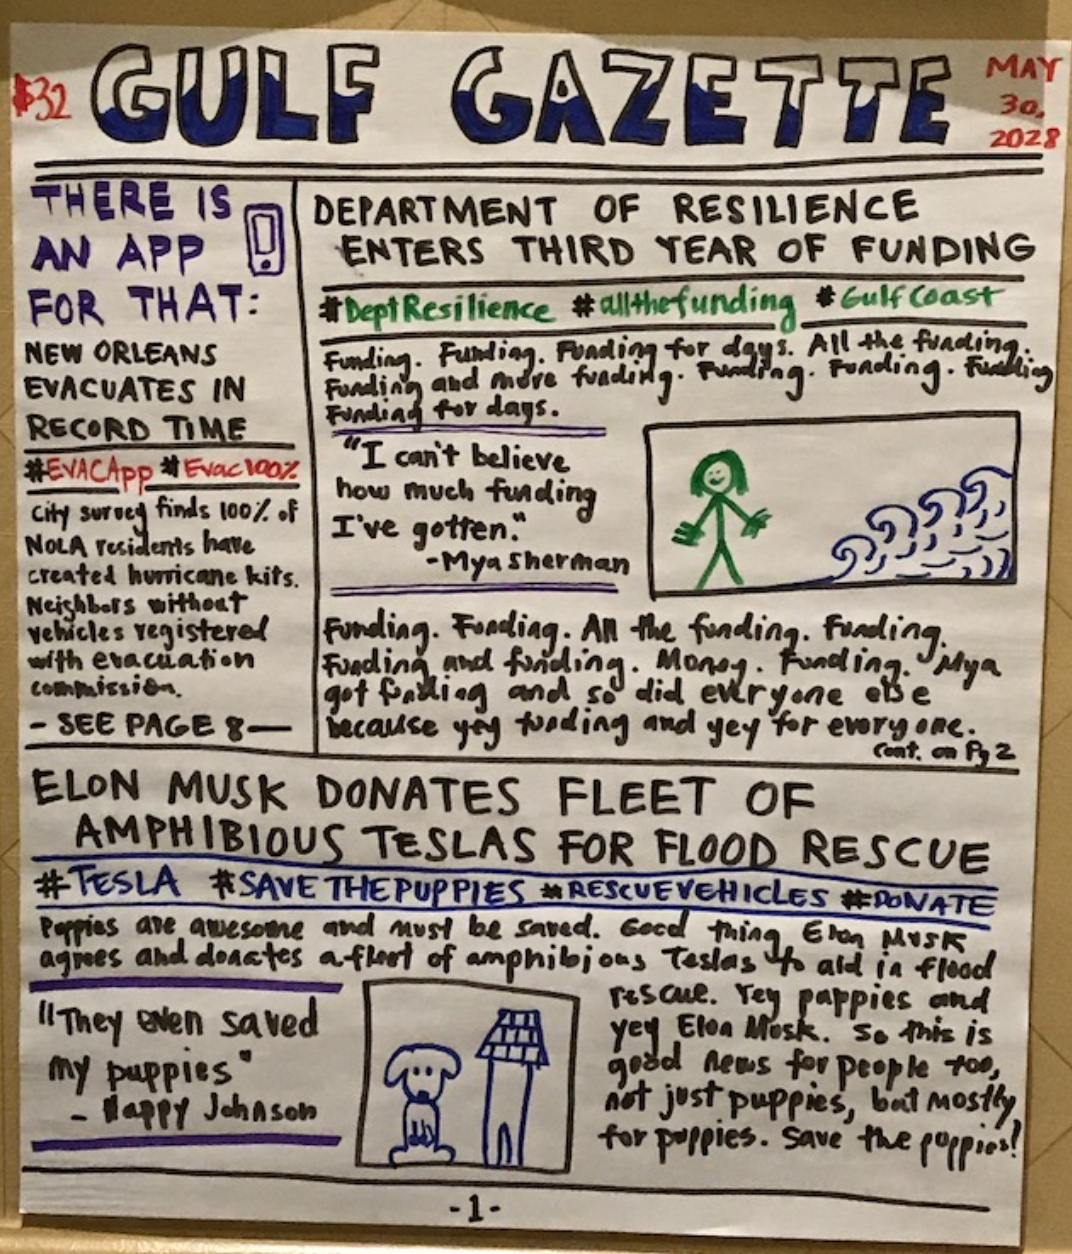 $32
GULF GAZETTE
MAY
30,
2028
THERE IS
AN APP
FOR THAT:
NEW ORLEANS
EVACUATES IN
RECORD TIME
#EVACApp #Evac100%
City survey finds 100% of
NOLA residents have
created hurricane kits.
Neighbors without
vehicles registered
with evacuation
commission.
- SEE PAGE 8—
DEPARTMENT OF RESILIENCE
ENTERS THIRD YEAR OF FUNDING
#DeptResilience #allthefunding #GulfCoast
Funding. Funding. Funding for days. All the funding.
Funding and more funding. Funding. Funding. Funding
Funding for days.
"I can't believe
how much funding
I've gotten."
-Mya Sherman
Funding. Funding. All the funding. Funding.
Funding and funding. Money. Funding. Mya
got funding and so did everyone else
because yey funding and yey for everyone.
Cont. on Pg 2
ELON MUSK DONATES FLEET OF
AMPHIBIOUS TESLAS FOR FLOOD RESCUE
#TESLA #SAVETHEPUPPIES #RESCUEVEHICLES #DONATE
Puppies are awesome and must be saved. Good thing Elon Musk
agrees and donates a fleet of amphibious Teslas to aid in flood
rescue. Yey puppies and
yey Elon Musk. So this is
good news for people too,
not just puppies, but mostly
for puppies. Save the puppies!
"They even saved
my puppies"
- Happy Johnson
-1-